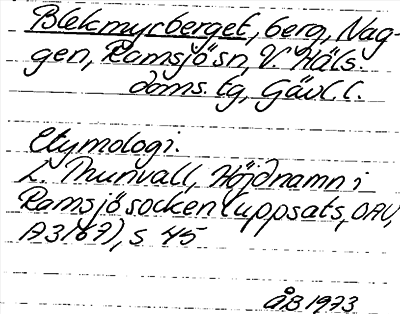 Blekmyrberget, berg, Nag-
gen, Ramsjö sn, V. Häls.
doms. tg, Gävl. l.
Etymologi.
L. Thunvall, Höjdnamn i
Ramsjö socken (uppsats, OAU,
A3167), s 45
ÅB 1973